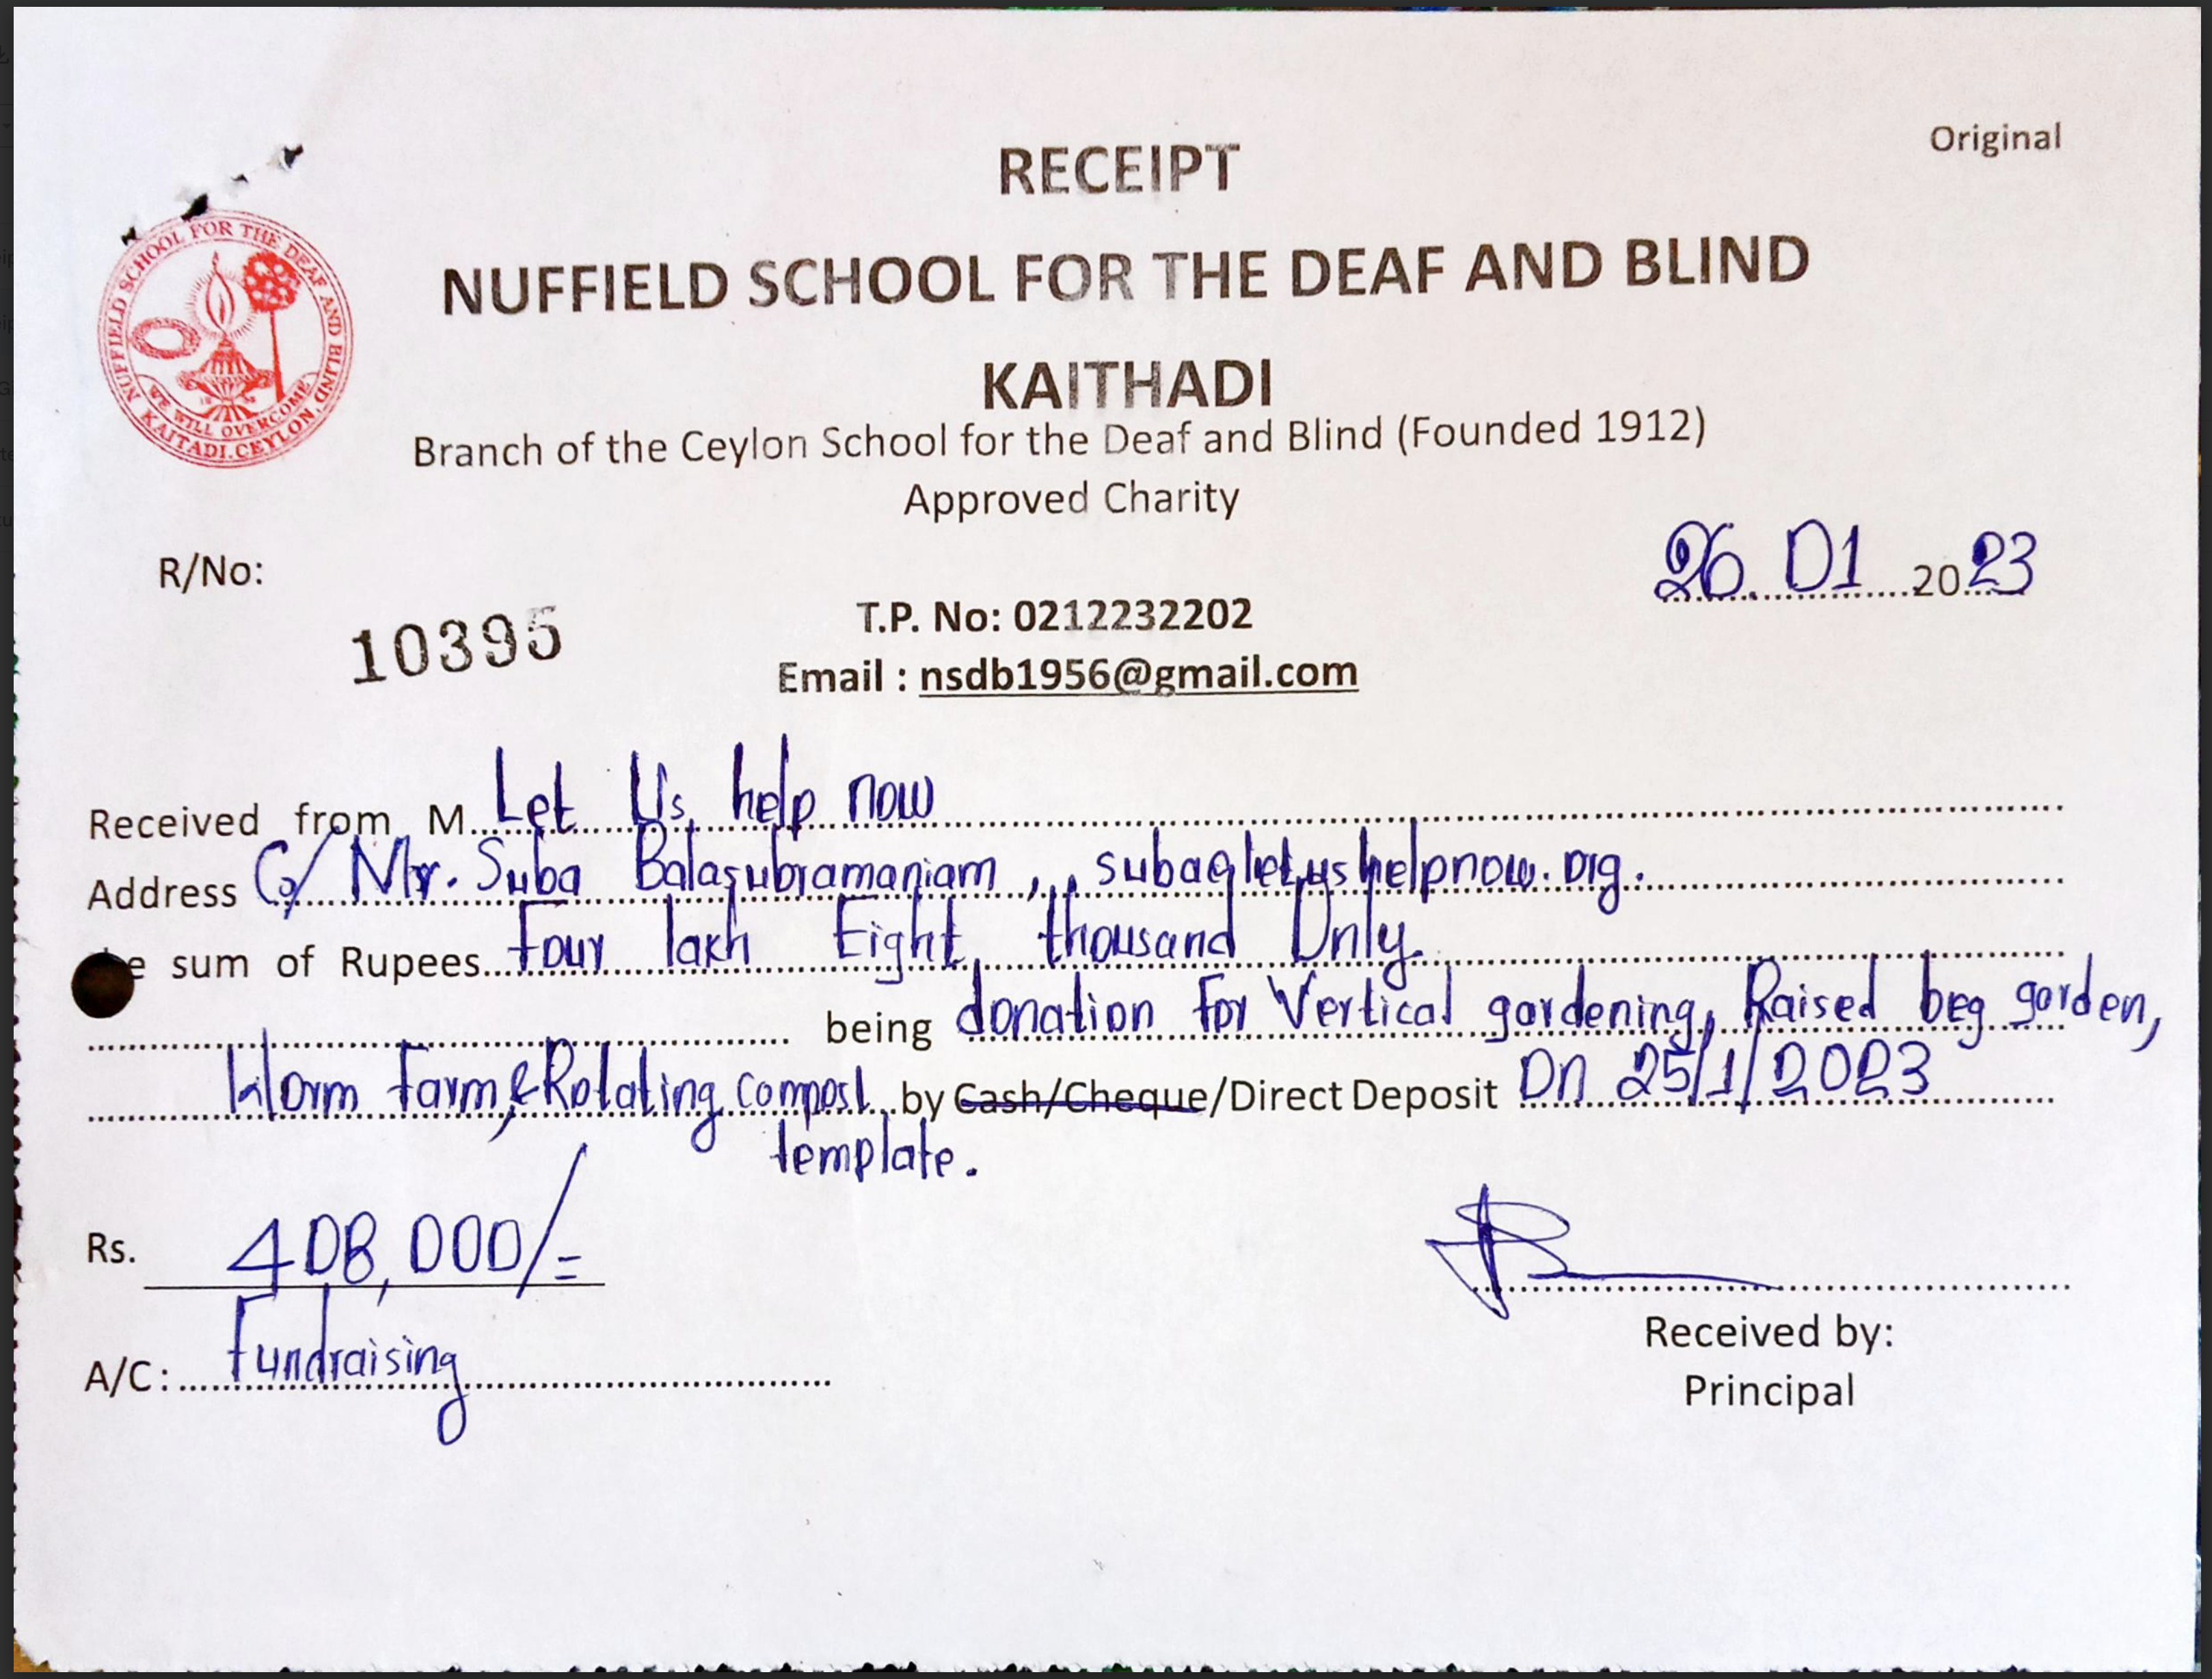 Original
RECEIPT
NUFFIELD SCHOOL FOR THE DEAF AND BLIND
KAITHADI
NUFFIELD SCHOOL FOR THE DEAF AND BLIND,
KAITADI.CEYLON.
WE WILL OVERCOME
Branch of the Ceylon School for the Deaf and Blind (Founded 1912)
Approved Charity
R/No:
10395
26.01 2023
T.P. No: 0212232202
Email : nsdb1956@gmail.com
Received from M Let Us help now
Address C/o Mr. Suba Balasubramaniam , , suba@letushelpnow.org.
e sum of Rupees Four lakh Eight thousand Only.
being donation for Vertical gardening, Raised beg garden,
Worm Farm, & Rotating compost by Cash/Cheque/Direct Deposit On 25/1/2023
template.
Rs. 408,000/=
A/C: Fundraising
Received by:
Principal